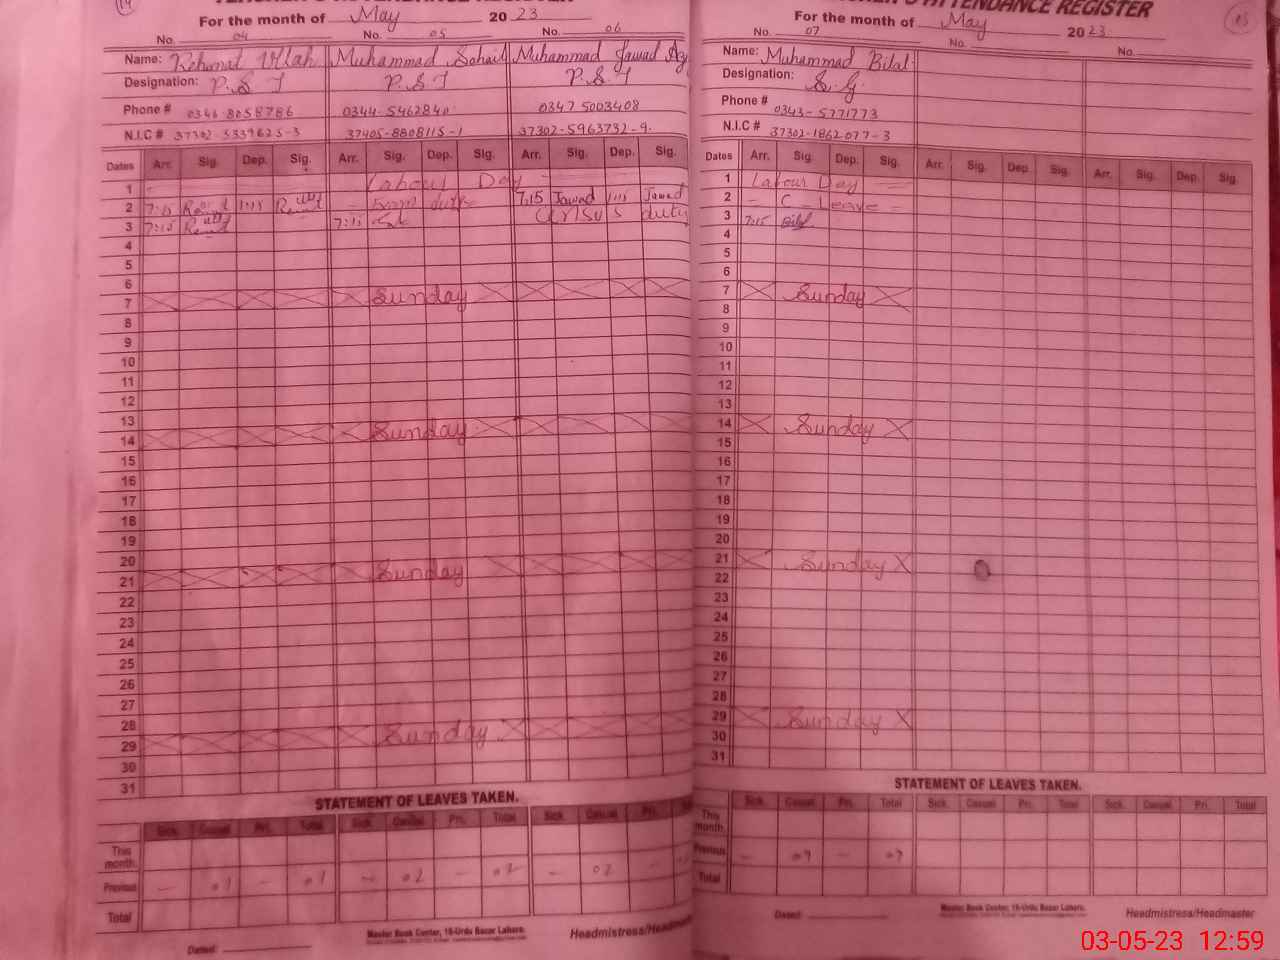 14
TEACHER'S ATTENDANCE REGISTER
For the month of May 2023
No. 04 No. 05 No. 06
Name: Rehmat Ullah Muhammad Sohail Muhammad Jawad
Designation: P.S.T P.S.T P.S.T
Phone # 0344-5462840 0347 5003408
N.I.C # 37302-5339625-3 37405-8808115-1 37302-5963732-9
Dates Arr. Sig. Dep. Sig. Arr. Sig. Dep. Sig. Arr. Sig. Dep. Sig.
1 Labour Day
2 7:15 1:15 duty 7:15 Jawad 1:15 Jawad
3 7:15 7:15 Census duty
4
5
6
7 Sunday
8
9
10
11
12
13
14 Sunday
15
16
17
18
19
20
21 Sunday
22
23
24
25
26
27
28
29 Sunday
30
31
STATEMENT OF LEAVES TAKEN.
Sick. Casual Pri. Total Sick. Casual Pri. Total Sick. Casual Pri.
This month.
Previous - 01 - 01 - 02 - 02 - 02 -
Total
Master Book Center, 16-Urdu Bazar Lahore.
Dated: Headmistress/Headm
15
TEACHER'S ATTENDANCE REGISTER
For the month of May 2023
No. 07 No. No.
Name: Muhammad Bilal
Designation: S.G.
Phone # 0343-5771773
N.I.C # 37302-1862077-3
Dates Arr. Sig. Dep. Sig. Arr. Sig. Dep. Sig. Arr. Sig. Dep. Sig.
1 Labour Day
2 - C - Leave -
3 7:15 Bilal
4
5
6
7 Sunday
8
9
10
11
12
13
14 Sunday
15
16
17
18
19
20
21 Sunday
22
23
24
25
26
27
28
29 Sunday
30
31
STATEMENT OF LEAVES TAKEN.
Sick. Casual Pri. Total Sick. Casual Pri. Total Sick. Casual Pri. Total
This month.
Previous - 07 - 07
Total
Master Book Center, 16-Urdu Bazar Lahore.
Dated: Headmistress/Headmaster
03-05-23 12:59